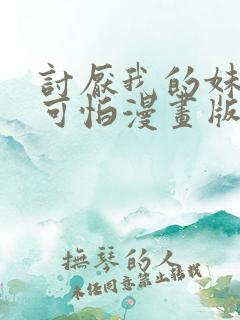 討厭我的妹
可怕漫畫版
撫琴的人
未經同意禁止轉載